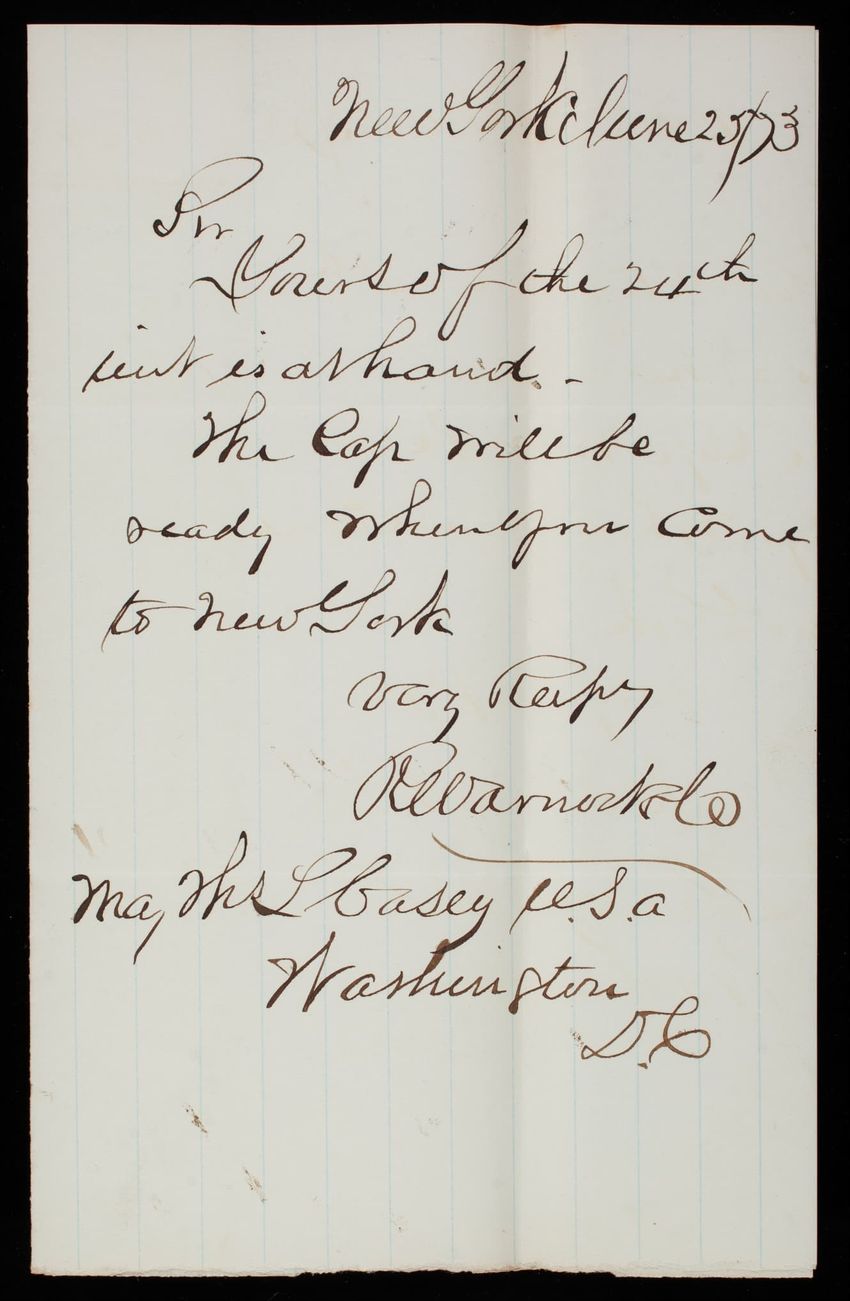 New York June 25/73
Sir
Yours of the 24th
inst is at hand. -
The Cap will be
ready when you come
to New York
Very Respy
R Warnock & Co
Maj Ths L Casey U.S.a
Washington
D.C